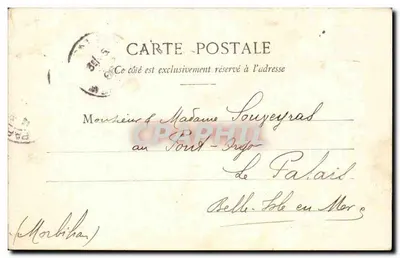 CARTE POSTALE
Ce côté est exclusivement réservé à l'adresse
Monsieur & Madame Soujeyras
au Pont-Orgo
Le Palais
Belle-Isle en Mer
(Morbihan)